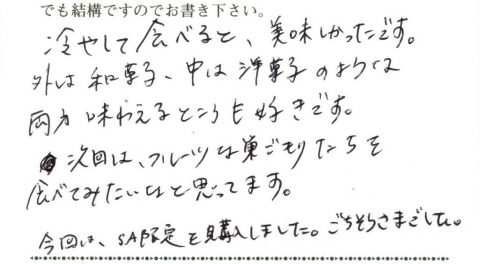 でも結構ですのでお書き下さい。
冷やして食べると、美味しかったです。
外は和菓子、中は洋菓子のような
両方味わえるところも好きです。
次回は、フルーツな巣ごもりたちを
食べてみたいなと思ってます。
今回は、SA限定を購入しました。ごちそうさまでした。